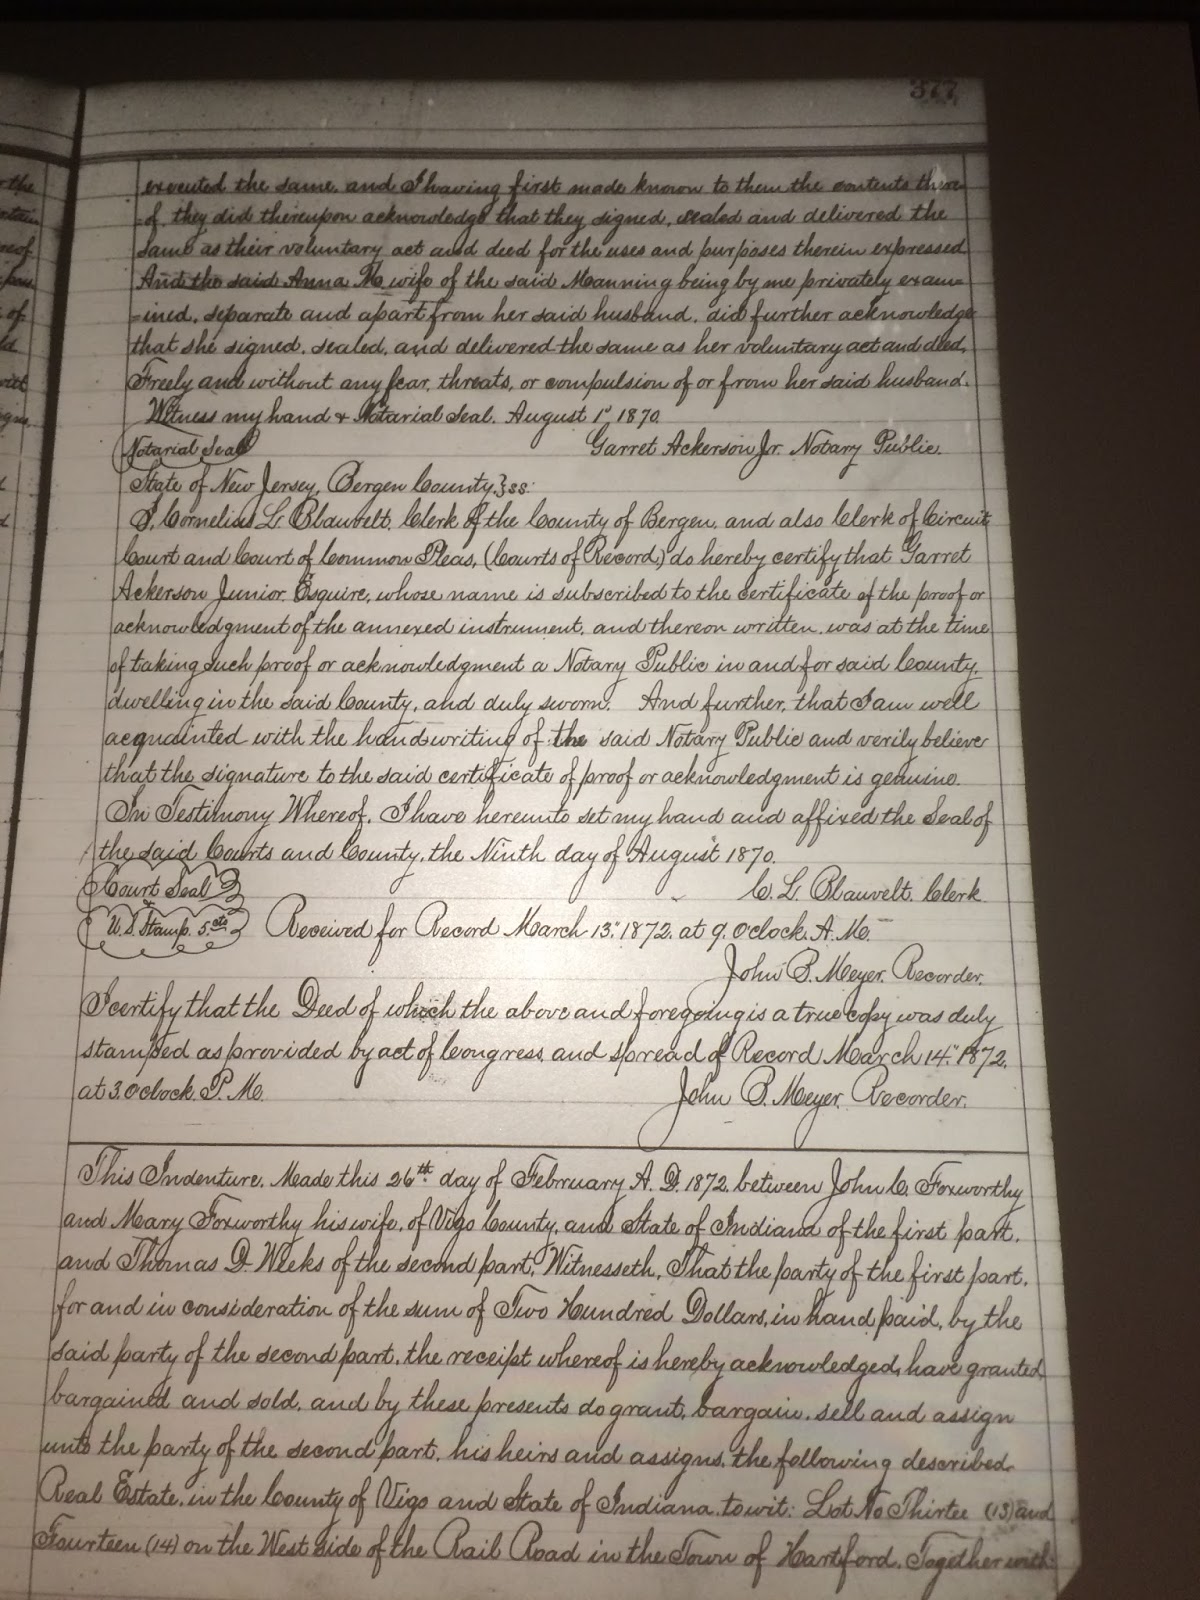 377
executed the same, and I having first made known to them the contents there=
=of, they did thereupon acknowledge that they signed, sealed and delivered the
same as their voluntary act and deed for the uses and purposes therein expressed
And the said Anna M. wife of the said Manning being by me privately exam=
=ined, separate and apart from her said husband, did further acknowledge
that she signed, sealed, and delivered the same as her voluntary act and deed,
Freely and without any fear, threats, or compulsion of or from her said husband.
Witness my hand & Notarial Seal. August 1" 1870.
Notarial Seal Garret Ackerson Jr. Notary Public.
State of New Jersey, Bergen County,}ss:
I, Cornelius L. Blauvelt, Clerk of the County of Bergen, and also Clerk of Circuit
Court and Court of Common Pleas, (Courts of Record,) do hereby certify that Garret
Ackerson Junior, Esquire, whose name is subscribed to the certificate of the proof or
acknowledgment of the annexed instrument, and thereon written, was at the time
of taking such proof or acknowledgment a Notary Public in and for said County,
dwelling in the said County, and duly sworn. And further, that I am well
acquainted with the handwriting of the said Notary Public and verily believe
that the signature to the said certificate of proof or acknowledgment is genuine.
In Testimony Whereof, I have hereunto set my hand and affixed the Seal of
the said Courts and County, the Ninth day of August 1870.
Court Seal C. L. Blauvelt, Clerk
&
U.S. Stamp. 5.cts Received for Record March 13" 1872. at 9. Oclock. A. M.
John B. Meyer, Recorder.
I certify that the Deed of which the above and foregoing is a true copy was duly
stamped as provided by act of Congress, and spread of Record March 14" 1872.
at 3. Oclock. P. M. John B. Meyer, Recorder.
This Indenture, Made this 26th day of February A. D. 1872, between John C. Foxworthy
and Mary Foxworthy his wife, of Vigo County, and State of Indiana of the first part,
and Thomas D. Weeks of the second part, Witnesseth, That the party of the first part,
for and in consideration of the sum of Two Hundred Dollars, in hand paid, by the
said party of the second part, the receipt whereof is hereby acknowledged, have granted,
bargained and sold, and by these presents do grant, bargain, sell and assign
unto the party of the second part, his heirs and assigns, the following described
Real Estate, in the County of Vigo and State of Indiana, to wit: Lot No Thirtee (13) and
Fourteen (14) on the West side of the Rail Road in the Town of Hartford, Together with